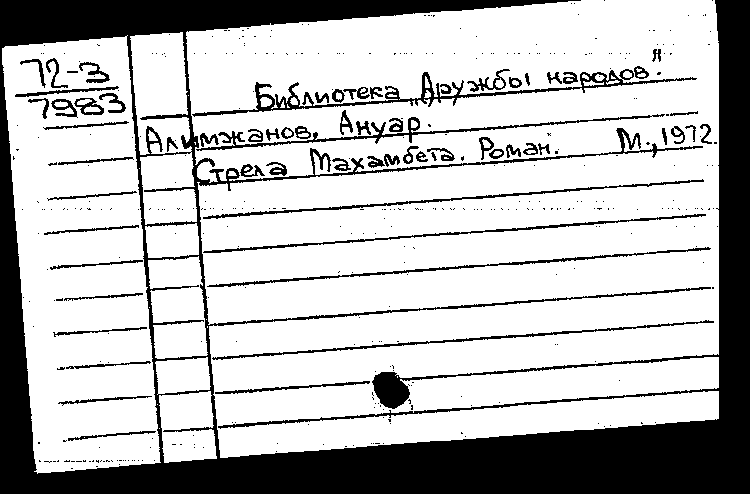 72-3
7983
Библиотека „Дружбы народов".
Алимжанов, Ануар.
Стрела Махамбета. Роман. М., 1972.